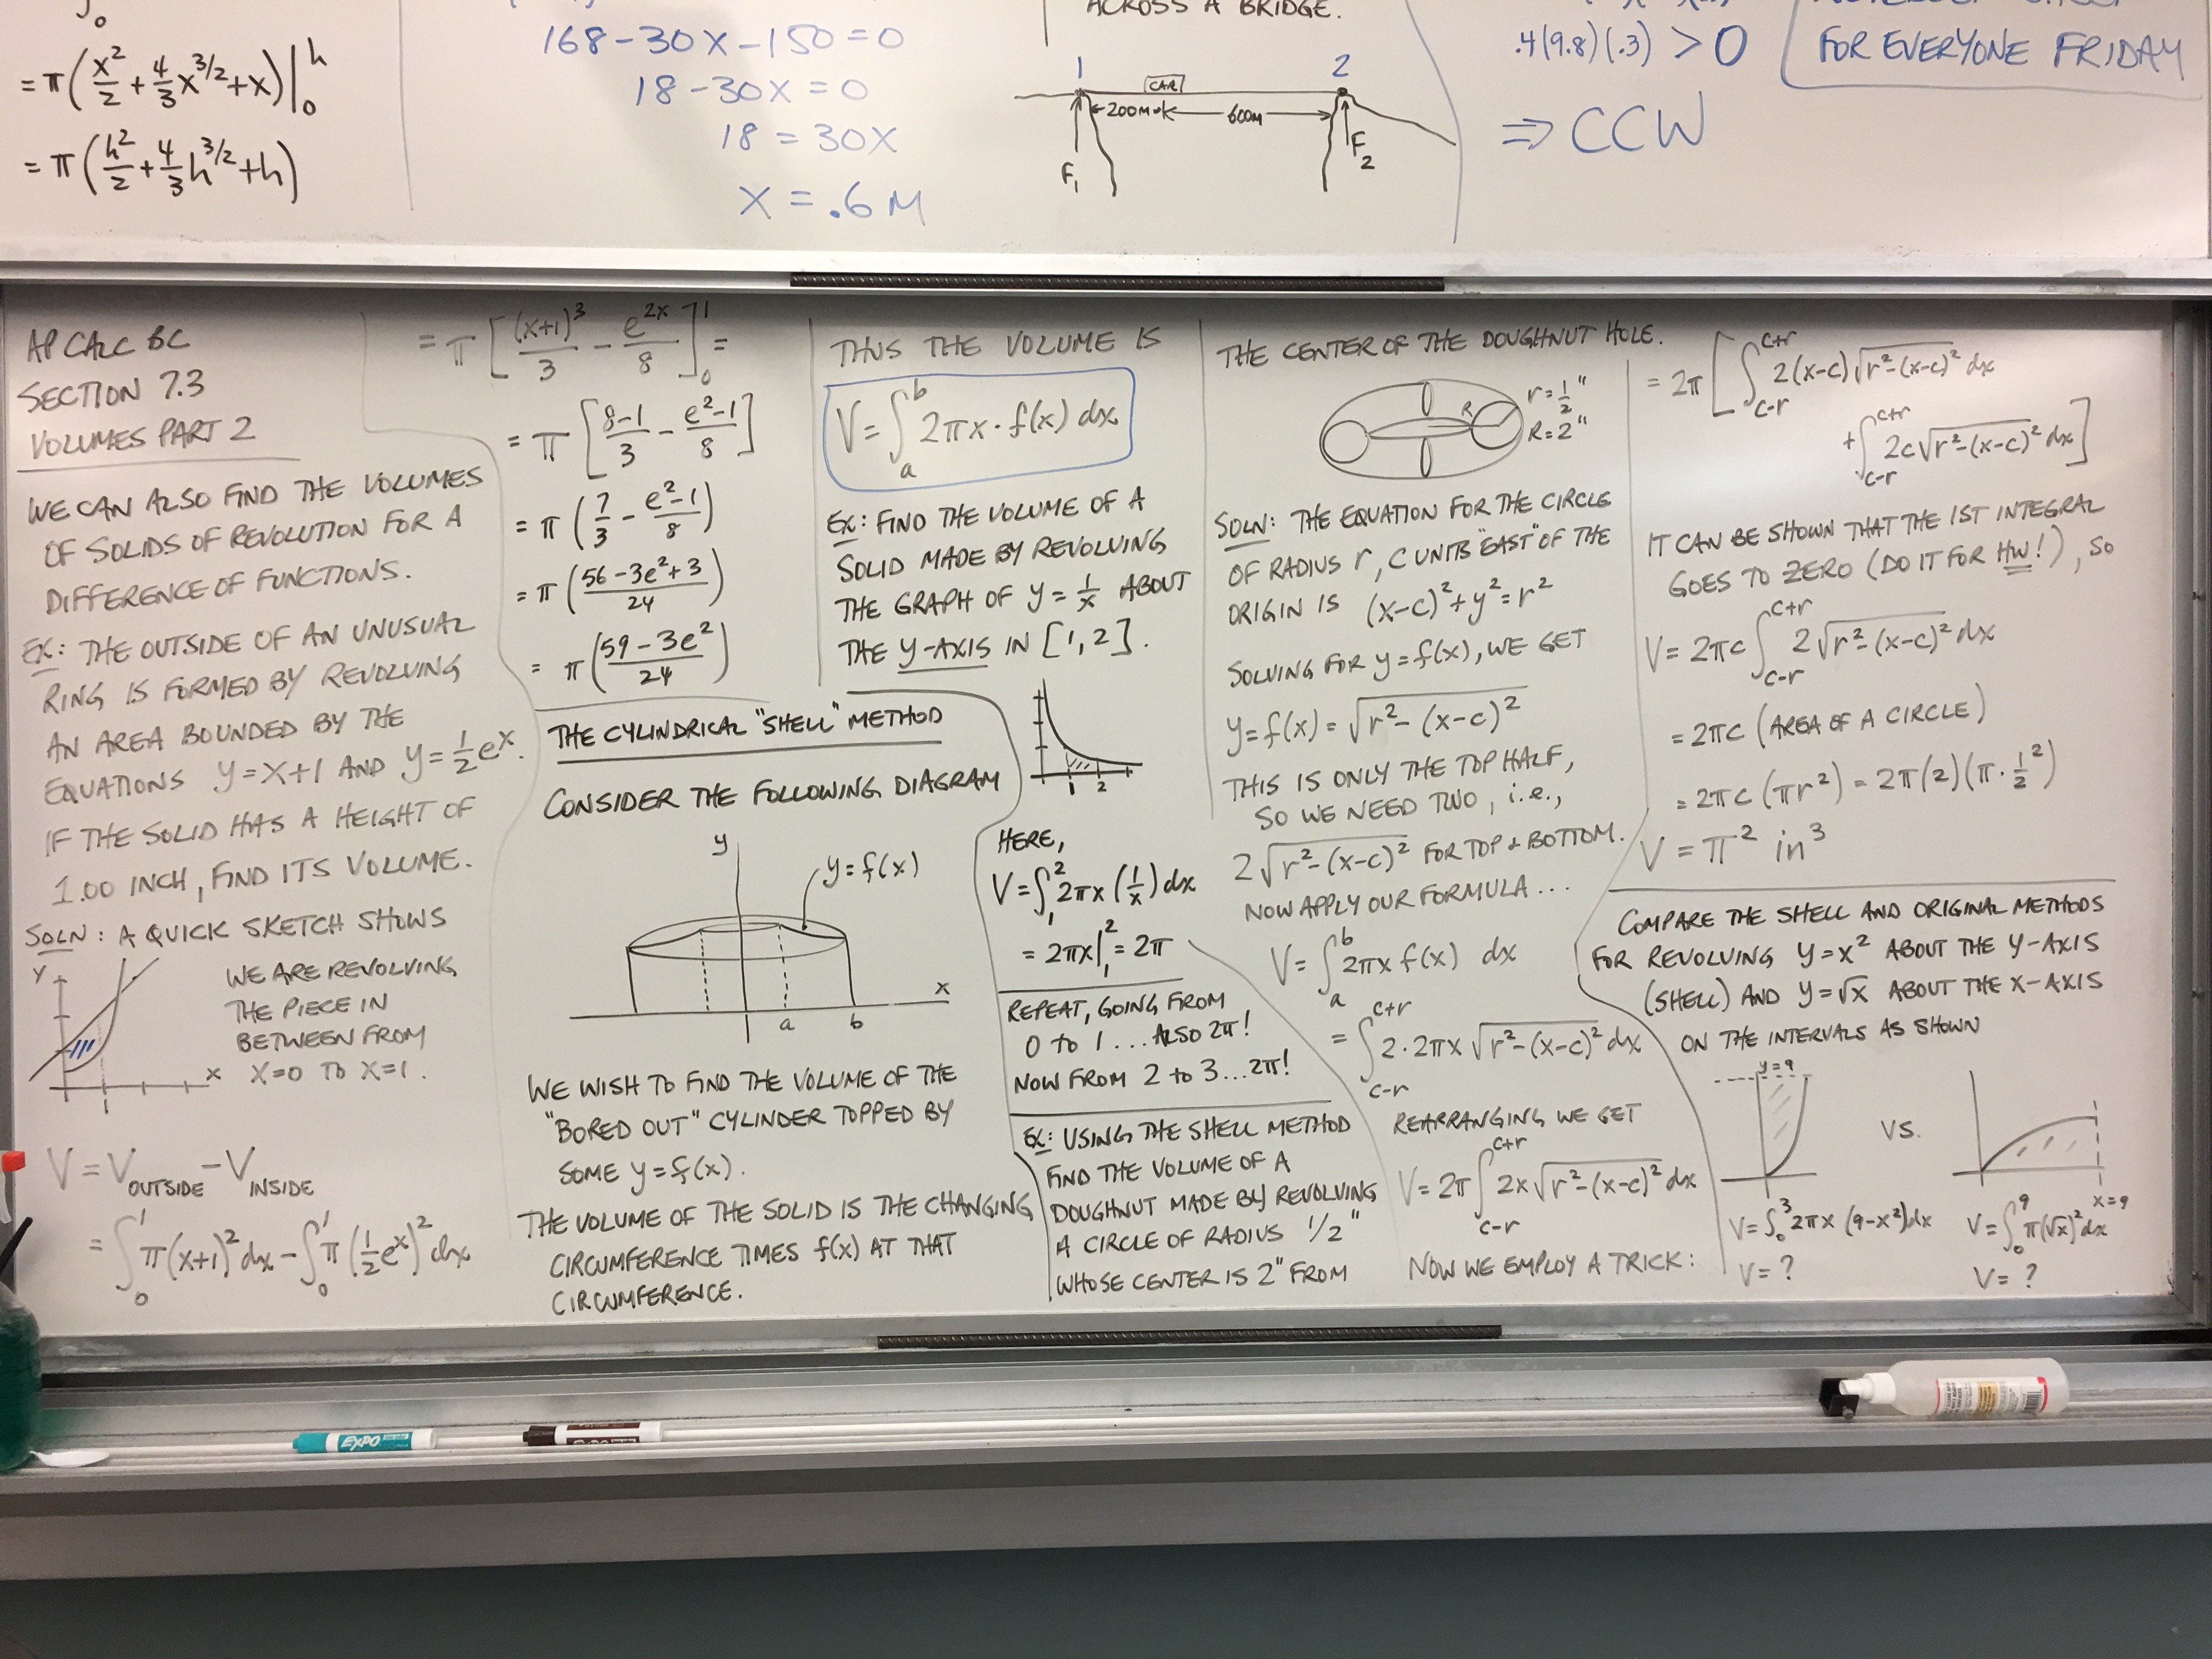 = π(x²/2 + 4/3 x^(3/2) + x)|₀ʰ
= π(h²/2 + 4/3 h^(3/2) + h)
168 - 30X - 150 = 0
18 - 30X = 0
18 = 30X
X = .6 M
ACROSS A BRIDGE.
1 CAR 2
200M 600M
F₁ F₂
.4(9.8)(.3) > 0
⇒ CCW
FOR EVERYONE FRIDAY
AP CALC BC
SECTION 7.3
VOLUMES PART 2
WE CAN ALSO FIND THE VOLUMES
OF SOLIDS OF REVOLUTION FOR A
DIFFERENCE OF FUNCTIONS.
EX: THE OUTSIDE OF AN UNUSUAL
RING IS FORMED BY REVOLVING
AN AREA BOUNDED BY THE
EQUATIONS y = x+1 AND y = ½eˣ.
IF THE SOLID HAS A HEIGHT OF
1.00 INCH, FIND ITS VOLUME.
SOLN: A QUICK SKETCH SHOWS
WE ARE REVOLVING
THE PIECE IN
BETWEEN FROM
X=0 TO X=1.
Y
X
1
V = V_OUTSIDE - V_INSIDE
= ∫₀¹ π(x+1)² dx - ∫₀¹ π(½eˣ)² dx
= π[(x+1)³/3 - e^(2x)/8]₀¹ =
= π[(8-1)/3 - (e²-1)/8]
= π(7/3 - (e²-1)/8)
= π((56-3e²+3)/24)
= π((59-3e²)/24)
THE CYLINDRICAL "SHELL" METHOD
CONSIDER THE FOLLOWING DIAGRAM
y
y = f(x)
x
a b
WE WISH TO FIND THE VOLUME OF THE
"BORED OUT" CYLINDER TOPPED BY
SOME y = f(x).
THE VOLUME OF THE SOLID IS THE CHANGING
CIRCUMFERENCE TIMES f(x) AT THAT
CIRCUMFERENCE.
THUS THE VOLUME IS
V = ∫ₐᵇ 2πx·f(x) dx
EX: FIND THE VOLUME OF A
SOLID MADE BY REVOLVING
THE GRAPH OF y = 1/x ABOUT
THE Y-AXIS IN [1,2].
1 2
HERE,
V = ∫₁² 2πx(1/x) dx
= 2πx|₁² = 2π
REPEAT, GOING FROM
0 to 1 ... ALSO 2π!
NOW FROM 2 to 3...2π!
EX: USING THE SHELL METHOD
FIND THE VOLUME OF A
DOUGHNUT MADE BY REVOLVING
A CIRCLE OF RADIUS 1/2"
WHOSE CENTER IS 2" FROM
THE CENTER OF THE DOUGHNUT HOLE.
R
r = ½"
R = 2"
SOLN: THE EQUATION FOR THE CIRCLE
OF RADIUS r, C UNITS "EAST" OF THE
ORIGIN IS (x-c)² + y² = r²
SOLVING FOR y = f(x), WE GET
y = f(x) = √(r² - (x-c)²)
THIS IS ONLY THE TOP HALF,
SO WE NEED TWO, i.e.,
2√(r²-(x-c)²) FOR TOP & BOTTOM.
NOW APPLY OUR FORMULA...
V = ∫ₐᵇ 2πx f(x) dx
= ∫_(c-r)^(c+r) 2·2πx √(r²-(x-c)²) dx
REARRANGING WE GET
V = 2π ∫_(c-r)^(c+r) 2x√(r²-(x-c)²) dx
NOW WE EMPLOY A TRICK:
= 2π[∫_(c-r)^(c+r) 2(x-c)√(r²-(x-c)²) dx
+ ∫_(c-r)^(c+r) 2c√(r²-(x-c)²) dx]
IT CAN BE SHOWN THAT THE 1ST INTEGRAL
GOES TO ZERO (DO IT FOR HW!), SO
V = 2πc ∫_(c-r)^(c+r) 2√(r²-(x-c)²) dx
= 2πc (AREA OF A CIRCLE)
= 2πc (πr²) = 2π(2)(π·½²)
V = π² in³
COMPARE THE SHELL AND ORIGINAL METHODS
FOR REVOLVING y = x² ABOUT THE Y-AXIS
(SHELL) AND y = √x ABOUT THE X-AXIS
ON THE INTERVALS AS SHOWN
y = 9
VS.
X = 9
V = ∫₀³ 2πx (9-x²) dx
V = ?
V = ∫₀⁹ π(√x)² dx
V = ?
EXPO
EXPO